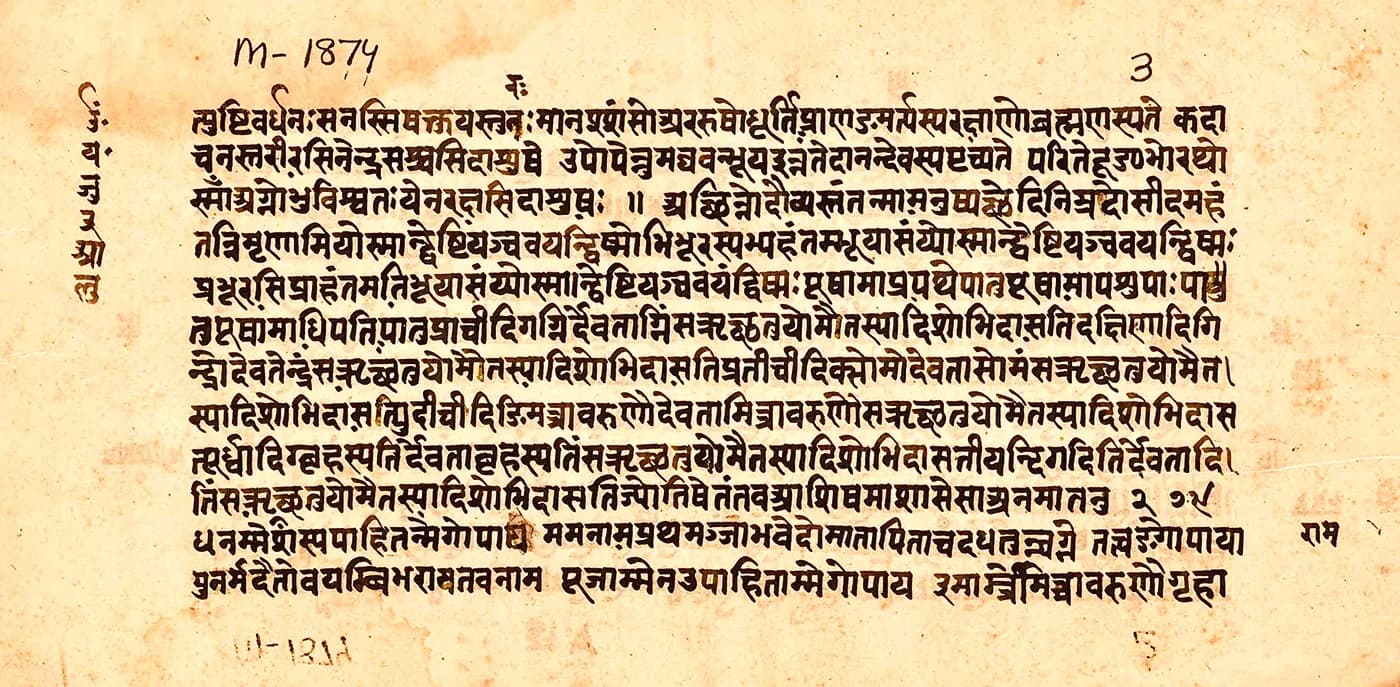 M-1874
3
रः
त्पुष्टिवर्धनः सनस्सिषक्तुयस्तुरः मानश्शंसोअररुषोधूर्तिप्राणङ्मर्त्यस्यरक्षाणोब्रह्मणस्पते कदा
चनस्तरीरसिनेन्द्रसश्चसिदाशुषे उपोपेन्नुमघवन्भूयइन्नुतेदानन्देवस्यपृच्यते परितेदूडभोरथो
स्माँअश्नोभुविश्वतः येनरक्षसिदाशुषः ॥ अच्छिन्नोदैव्यस्तंतन्मामनुष्यच्छेदिनिम्रदोसीदमहं
तन्निमृणामियोस्मान्द्वेष्टियञ्चवयन्द्विष्मोभिभूरस्यभ्यहंतम्भूयासंय्योस्मान्द्वेष्टियञ्चवयन्द्विष्मः
प्रभूरसिप्राहंतमतिभूयासंय्योस्मान्द्वेष्टियञ्चवयंद्विष्मः पूषामाप्रपथेपातुपूषामापशुपाः पा
तुपूषामाधिपतिपातुप्राचीदिगग्निर्देवताग्निंसऋच्छतुयोमैतस्यादिशोभिदासतिदक्षिणादिगि
न्द्रोदेवतेन्द्रंसऋच्छतुयोमैतस्यादिशोभिदासतिप्रतीचीदिक्सोमोदेवतासोमंसऋच्छतुयोमैत।
स्यादिशोभिदासत्युदीचीदिङ्मित्रावरुणौदेवतामित्रावरुणौसऋच्छतुयोमैतस्यादिशोभिदास
त्यूर्ध्वादिग्बृहस्पतिर्देवताबृहस्पतिंसऋच्छतुयोमैतस्यादिशोभिदासतीयन्दिगदितिर्देवतादि।
तिंसऋच्छतुयोमैतस्यादिशोभिदासतिज्योतिषेतंतवआशिषमाशासेसाअनमातनु २
धनम्मेशंस्यपाहितन्मेगोपाय ममनामप्रथमञ्जातवेदोमातापिताचदधतुर्न्वग्रे तत्त्वङ्गोपाया
राम
पुनर्मदैतोवयम्बिभरामतवनाम प्रजाम्मेनउपाहिताम्मेगोपाय इमाम्मेमित्रावरुणौगृहा